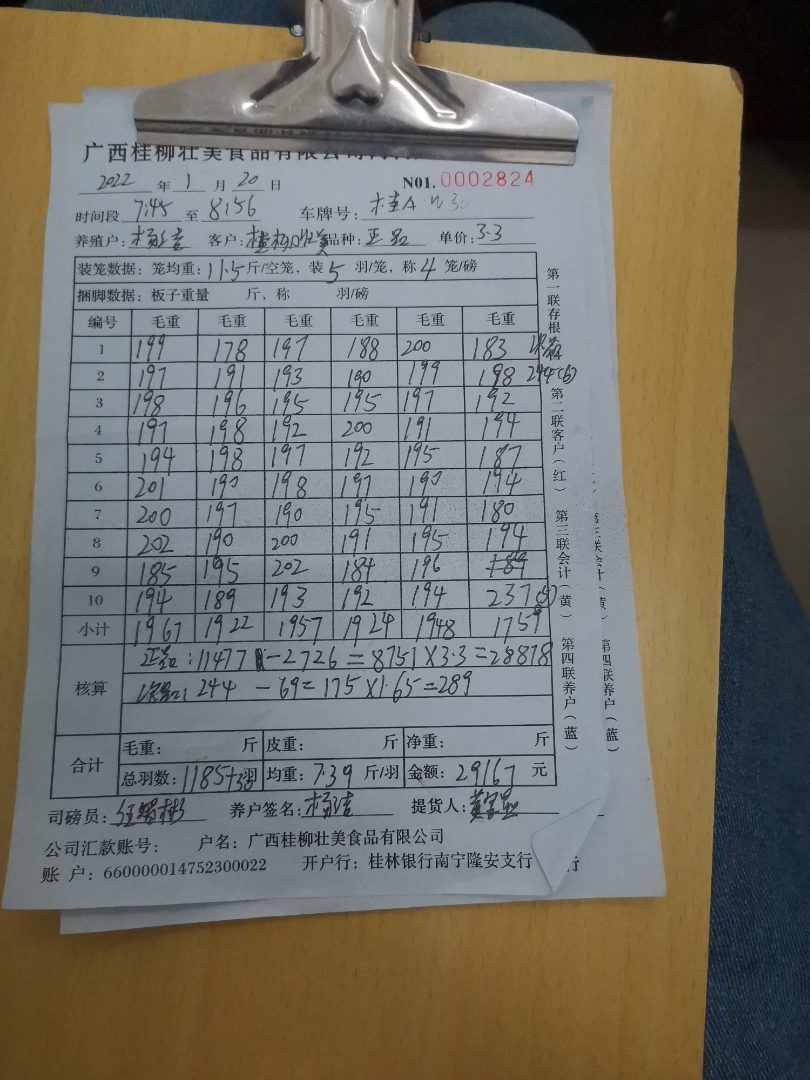 广西桂柳壮美食品有限公司
2022 年 1 月 20 日 NO1.0002824
时间段 7:45 至 8:56 车牌号: 桂A
养殖户: 杨洁 客户: 品种: 正品 单价: 3.3
装笼数据: 笼均重: 11.5 斤/空笼, 装 5 羽/笼, 称 4 笼/磅
捆脚数据: 板子重量 斤, 称 羽/磅
编号 毛重 毛重 毛重 毛重 毛重 毛重
1 199 178 197 188 200 183
2 197 191 193 190 199 198 244(6)
3 198 196 195 195 197 192
4 197 198 192 200 191 194
5 194 198 197 192 195 187
6 201 190 198 197 190 194
7 200 197 190 195 191 180
8 202 190 200 191 195 194
9 185 195 202 184 196
10 194 189 193 192 194 237
小计 1967 1922 1957 1924 1948 1759
核算 正品: 11477 -2726=8751×3.3=28878
244 -69=175×1.65=289
合计 毛重: 斤 皮重: 斤 净重: 斤
总羽数: 1185+3羽 均重: 7.39 斤/羽 金额: 29167 元
司磅员: 养户签名: 杨洁 提货人:
公司汇款账号: 户名: 广西桂柳壮美食品有限公司
账 户: 660000014752300022 开户行: 桂林银行南宁隆安支行
第一联存根
第二联客户(红)
第三联会计(黄)
第四联养户(蓝)
第三联会计(黄)
第四联养户(蓝)
行